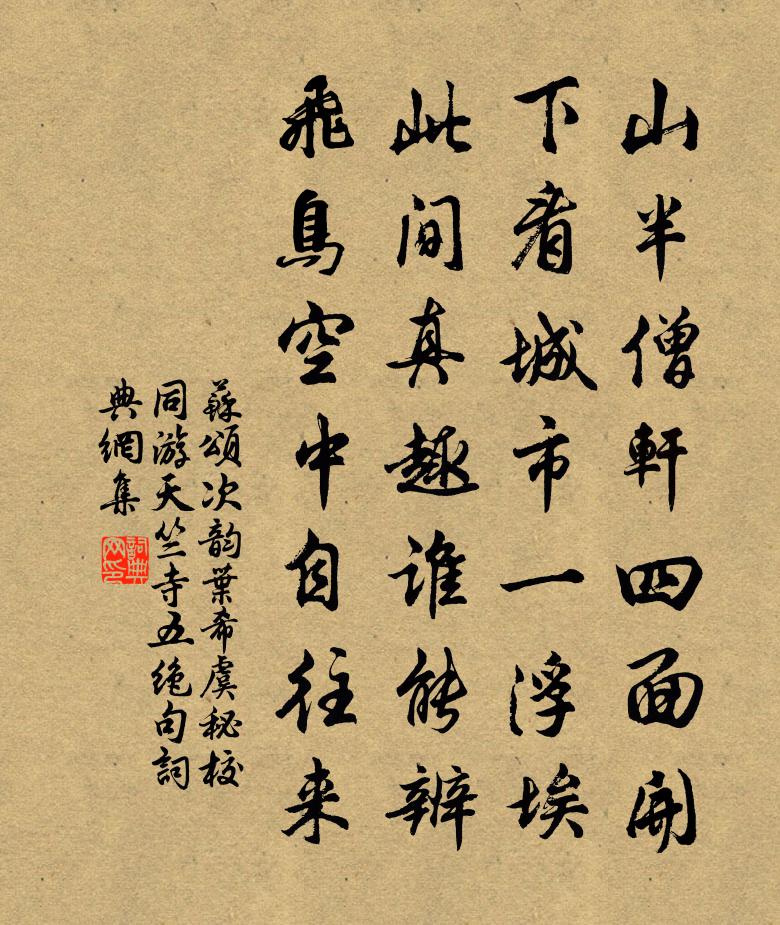 山半僧軒四面開
下看城市一浮埃
此间真趣谁能辨
飛鳥空中自往来
蘇頌次韵葉希虞秘校
同游天竺寺五绝句詞
典網集
詞典
网印